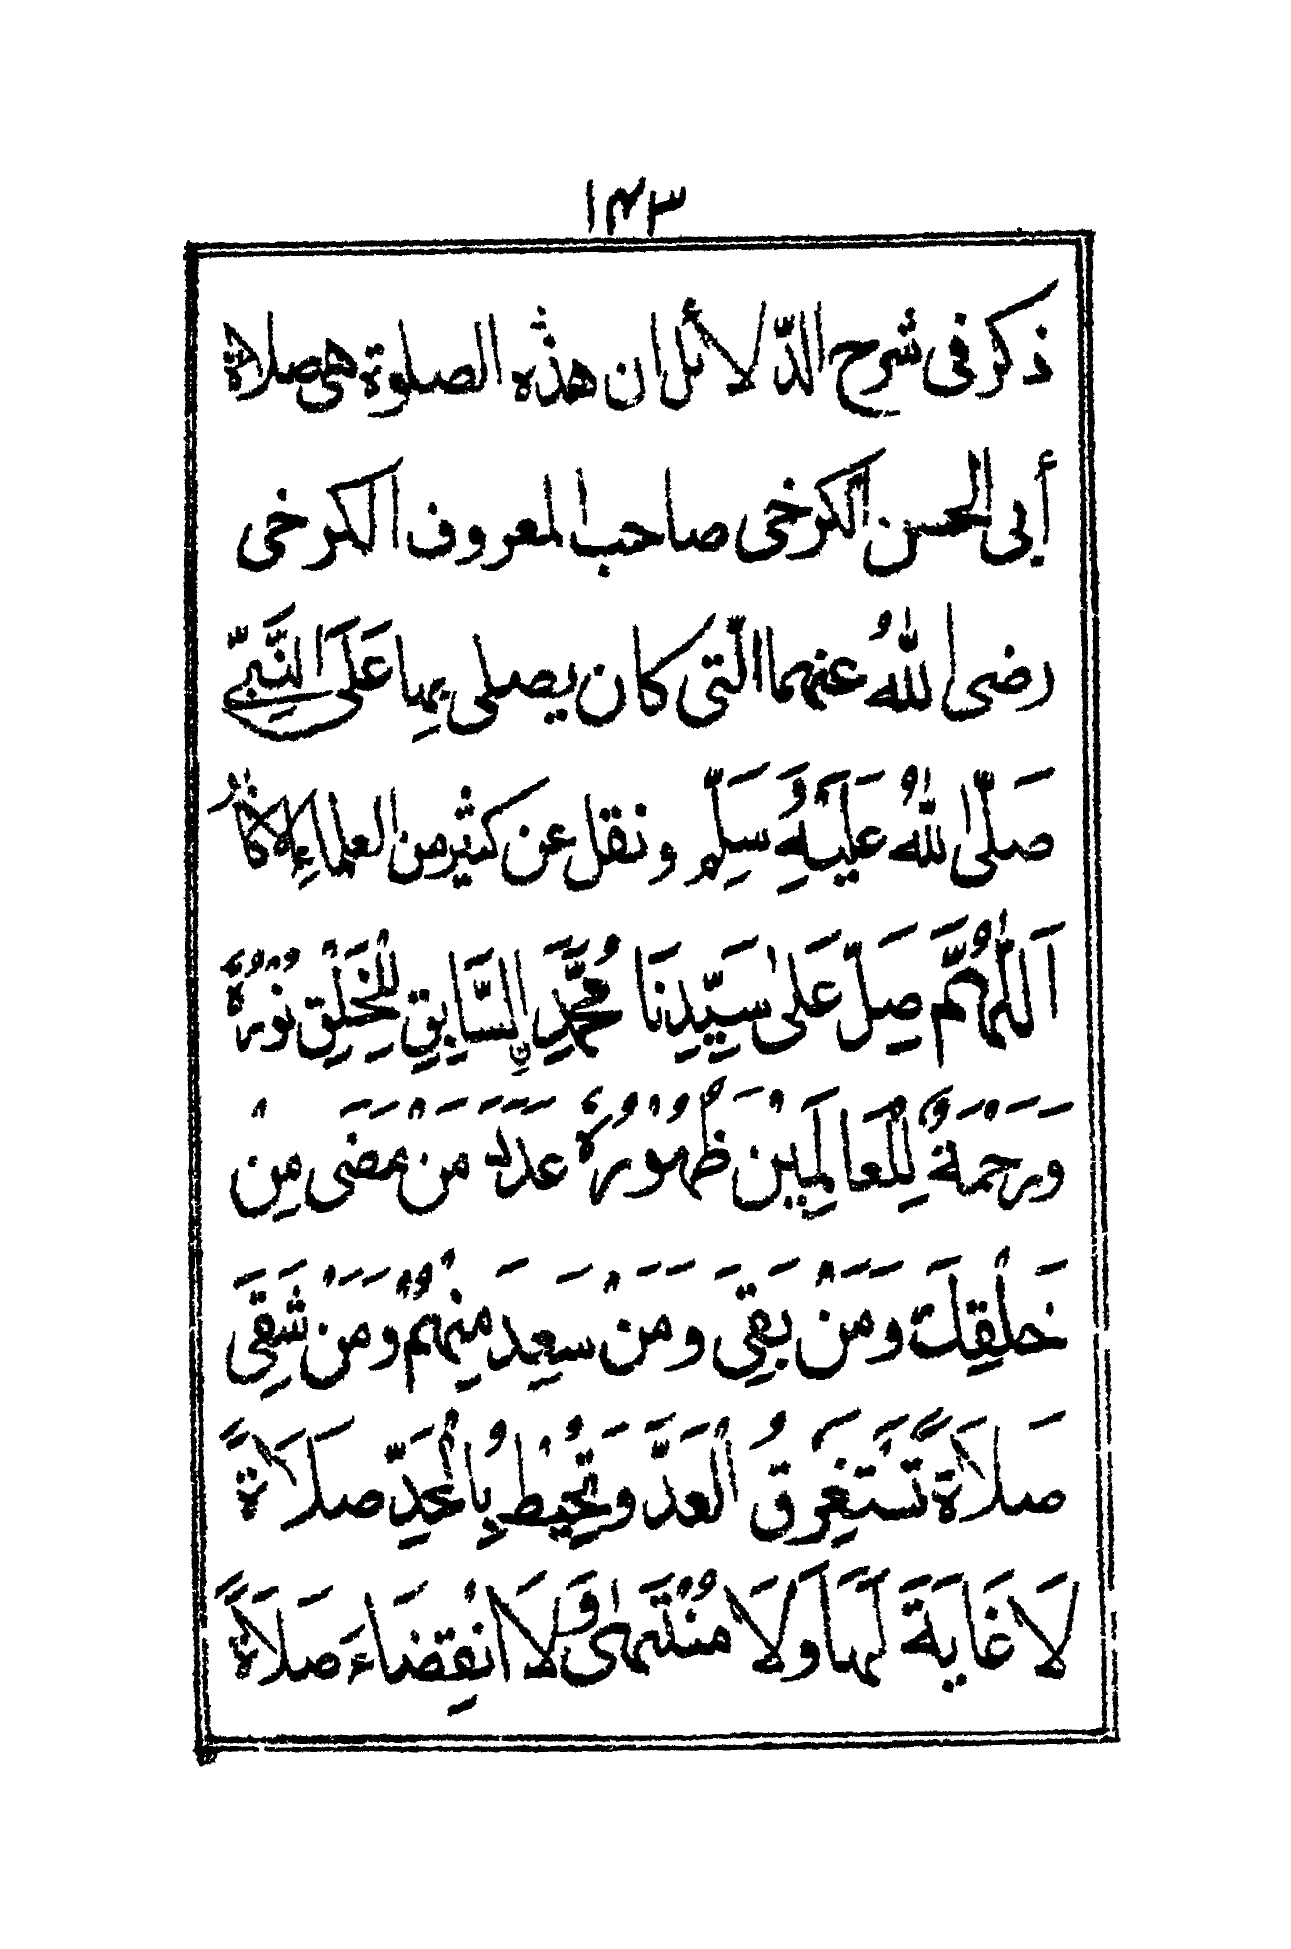 ١٤٣
ذكر فى شرح الدّلائل ان هذه الصلوة هى صلاة
أبى الحسن الكرخى صاحب المعروف الكرخى
رضى اللّٰهُ عنهما الّتى كان يصلى بِها عَلَى النَّبِىّ
صَلّى اللّٰهُ عَلَيْهِ وَسَلِّم ونقل عن كثير من العلماءِ الاكابر
اَللّٰهُمَّ صَلِّ عَلٰى سَيِّدِنَا مُحَمَّدِ السَّابِقِ لِلْخَلْقِ نُوْرُهُ
وَرَحْمَةٌ لِلْعَالَمِيْنَ ظُهُوْرُهُ عَدَدَ مَنْ مَضَى مِنْ
خَلْقِكَ وَمَنْ بَقِىَ وَمَنْ سَعِدَ مِنْهُمْ وَمَنْ شَقِىَ
صَلَاةً تَسْتَغْرِقُ الْعَدَّ وَتُحِيْطُ بِالْحَدِّ صَلَاةً
لَا غَايَةَ لَهَا وَلَا مُنْتَهٰى وَلَا انْقِضَاءَ صَلَاةً